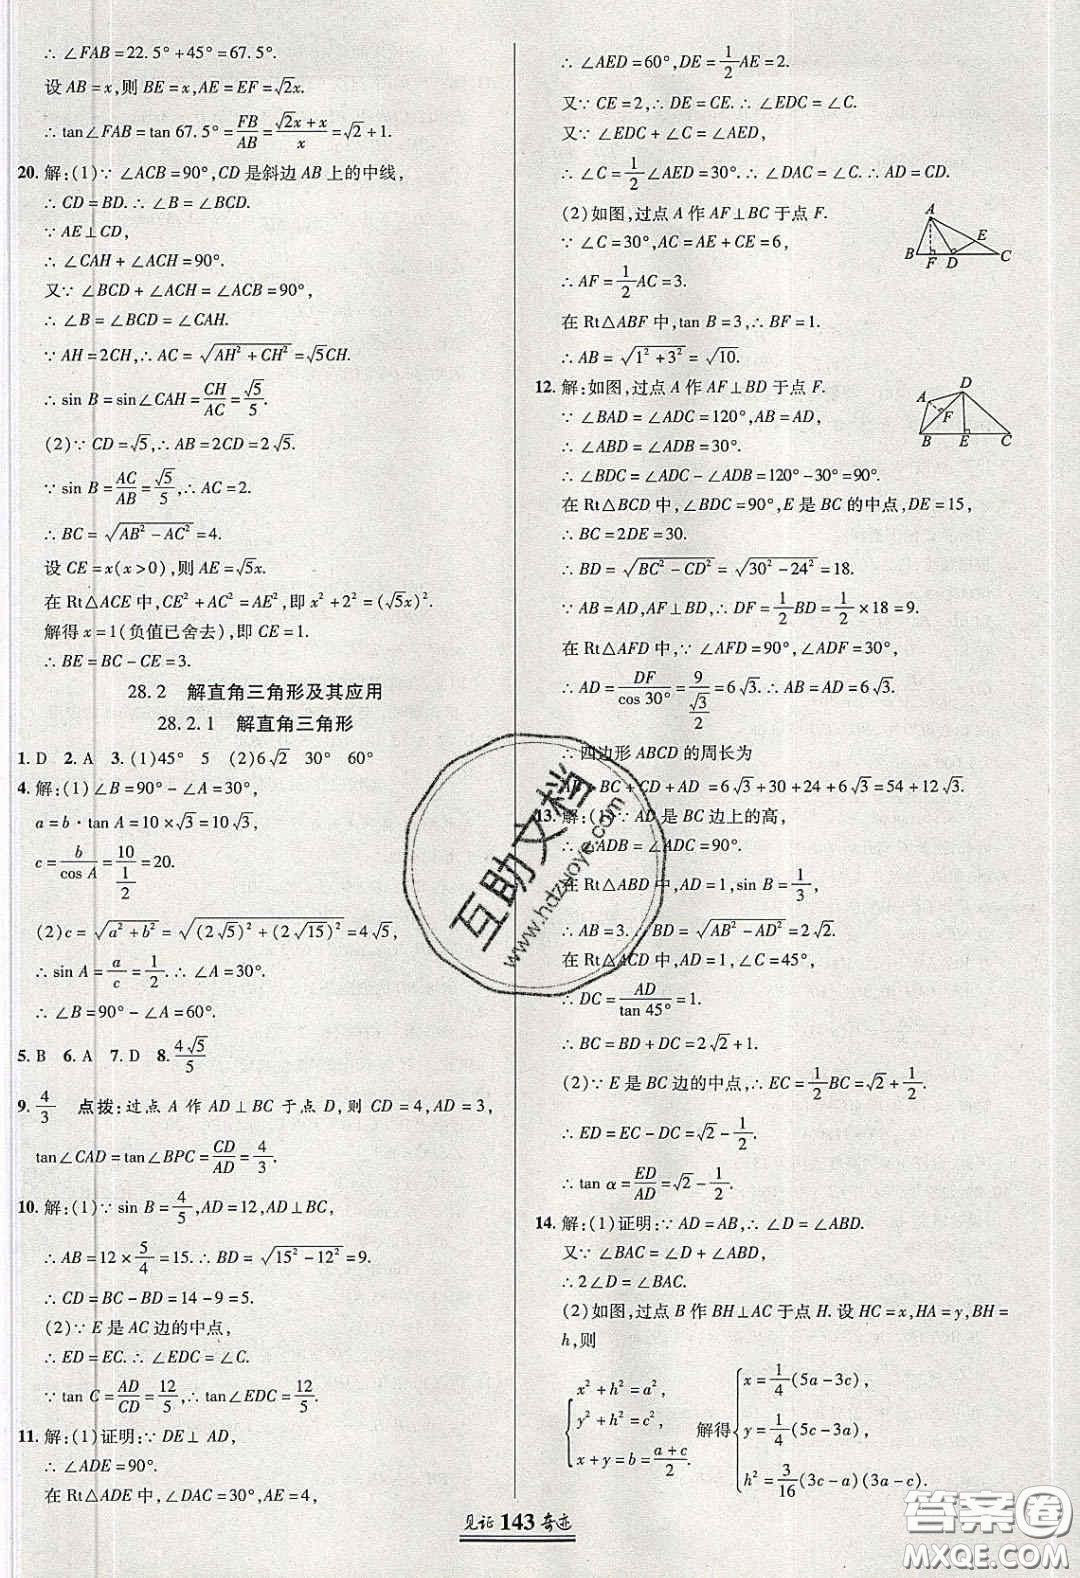 ∴ ∠FAB=22.5°+45°=67.5°.
设 AB=x,则 BE=x,AE=EF=√2x.
∴ tan∠FAB=tan 67.5°=FB/AB=(√2x+x)/x=√2+1.
20. 解:(1)∵ ∠ACB=90°,CD 是斜边 AB 上的中线,
∴ CD=BD.∴ ∠B=∠BCD.
∵ AE⊥CD,
∴ ∠CAH+∠ACH=90°.
又∵ ∠BCD+∠ACH=∠ACB=90°,
∴ ∠B=∠BCD=∠CAH.
∵ AH=2CH,∴ AC=√(AH²+CH²)=√5CH.
∴ sin B=sin∠CAH=CH/AC=√5/5.
(2)∵ CD=√5,∴ AB=2CD=2√5.
∵ sin B=AC/AB=√5/5,∴ AC=2.
∴ BC=√(AB²-AC²)=4.
设 CE=x(x>0),则 AE=√5x.
在 Rt△ACE 中,CE²+AC²=AE²,即 x²+2²=(√5x)².
解得 x=1(负值已舍去),即 CE=1.
∴ BE=BC-CE=3.
28.2 解直角三角形及其应用
28.2.1 解直角三角形
1. D 2. A 3. (1)45° 5 (2)6√2 30° 60°
4. 解:(1)∠B=90°-∠A=30°,
a=b·tan A=10×√3=10√3,
c=b/cos A=10/(1/2)=20.
(2)c=√(a²+b²)=√((2√5)²+(2√15)²)=4√5,
∴ sin A=a/c=1/2.∴ ∠A=30°.
∴ ∠B=90°-∠A=60°.
5. B 6. A 7. D 8. 4√5/5
9. 4/3 点拨:过点 A 作 AD⊥BC 于点 D,则 CD=4,AD=3,
tan∠CAD=tan∠BPC=CD/AD=4/3.
10. 解:(1)∵ sin B=4/5,AD=12,AD⊥BC,
∴ AB=12×5/4=15.∴ BD=√(15²-12²)=9.
∴ CD=BC-BD=14-9=5.
(2)∵ E 是 AC 边的中点,
∴ ED=EC.∴ ∠EDC=∠C.
∵ tan C=AD/CD=12/5,∴ tan∠EDC=12/5.
11. 解:(1)证明:∵ DE⊥AD,
∴ ∠ADE=90°.
在 Rt△ADE 中,∠DAC=30°,AE=4,
∴ ∠AED=60°,DE=1/2AE=2.
又∵ CE=2,∴ DE=CE.∴ ∠EDC=∠C.
又∵ ∠EDC+∠C=∠AED,
∴ ∠C=1/2∠AED=30°.∴ ∠DAC=∠C.∴ AD=CD.
(2)如图,过点 A 作 AF⊥BC 于点 F.
∵ ∠C=30°,AC=AE+CE=6,
∴ AF=1/2AC=3.
在 Rt△ABF 中,tan B=3,∴ BF=1.
∴ AB=√(1²+3²)=√10.
A
E
B F D C
12. 解:如图,过点 A 作 AF⊥BD 于点 F.
∵ ∠BAD=∠ADC=120°,AB=AD,
∴ ∠ABD=∠ADB=30°.
∴ ∠BDC=∠ADC-∠ADB=120°-30°=90°.
在 Rt△BCD 中,∠BDC=90°,E 是 BC 的中点,DE=15,
∴ BC=2DE=30.
∴ BD=√(BC²-CD²)=√(30²-24²)=18.
∵ AB=AD,AF⊥BD,∴ DF=1/2BD=1/2×18=9.
在 Rt△AFD 中,∵ ∠AFD=90°,∠ADF=30°,
∴ AD=DF/cos 30°=9/(√3/2)=6√3.∴ AB=AD=6√3.
D
A
F
B E C
∴ 四边形 ABCD 的周长为
AB+BC+CD+AD=6√3+30+24+6√3=54+12√3.
13. 解:(1)∵ AD 是 BC 边上的高,
∴ ∠ADB=∠ADC=90°.
在 Rt△ABD 中,AD=1,sin B=1/3,
∴ AB=3.∴ BD=√(AB²-AD²)=2√2.
在 Rt△ACD 中,AD=1,∠C=45°,
∴ DC=AD/tan 45°=1.
∴ BC=BD+DC=2√2+1.
(2)∵ E 是 BC 边的中点,∴ EC=1/2BC=√2+1/2.
∴ ED=EC-DC=√2-1/2.
∴ tan α=ED/AD=√2-1/2.
14. 解:(1)证明:∵ AD=AB,∴ ∠D=∠ABD.
又∵ ∠BAC=∠D+∠ABD,
∴ 2∠D=∠BAC.
(2)如图,过点 B 作 BH⊥AC 于点 H. 设 HC=x,HA=y,BH=
h,则
{x²+h²=a², y²+h²=c², x+y=b=(a+c)/2, 解得 {x=1/4(5a-3c), y=1/4(5c-3a), h²=3/16(3c-a)(3a-c).
见证 143 奇迹
互助文档
www.hdzuoye.com
答案圈
MXQE.COM